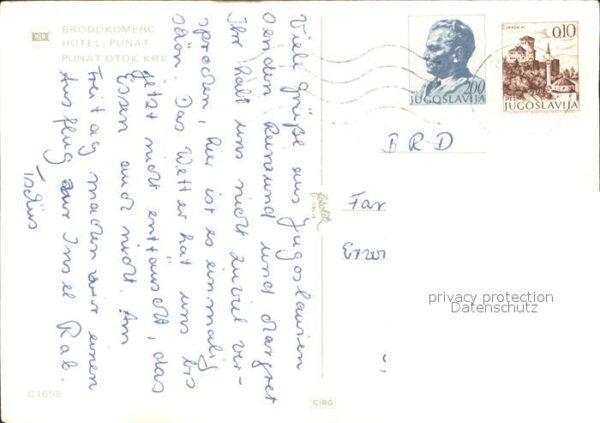 BRODOKOMERC
HOTELI PUNAT
PUNAT OTOK KRK
Viele Grüße aus Jugoslawien
senden Reinund und Margret
Ihr habt uns nicht zuviel ver-
sprochen, hier ist es einmalig
schön. Das Wetter hat uns bis
jetzt nicht enttäuscht, das
Essen auch nicht. Am
Freitag machen wir einen
Ausflug zur Insel Rab.
Tschüs
C 1658
CIRG
2,00
JUGOSLAVIJA
0,10
PTT
JUGOSLAVIJA
BRD
Fam
privacy protection
Datenschutz